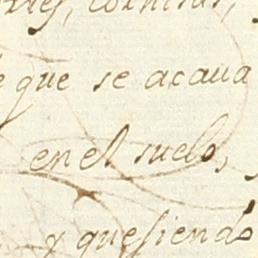 cornisas,
que se acaua
en el suelo,
y quesiendo